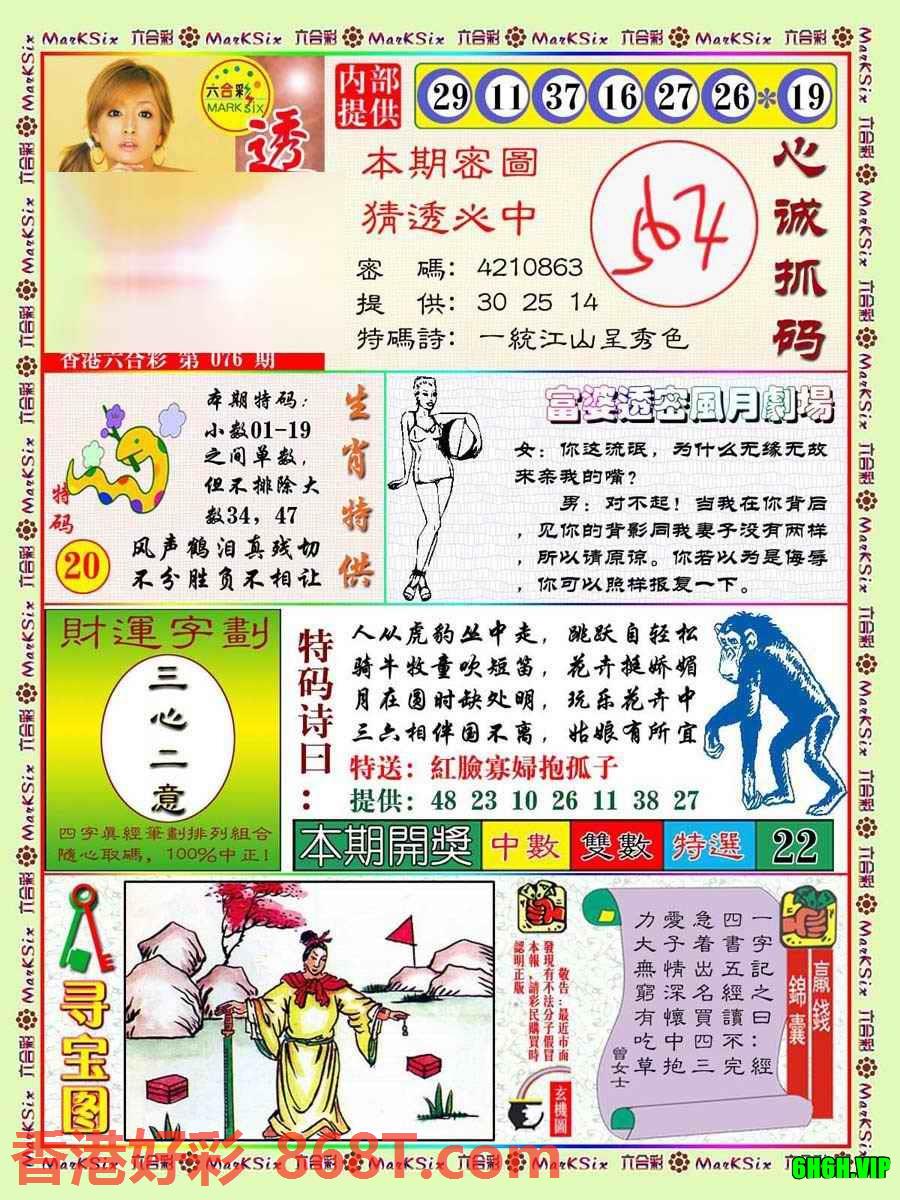 MarKSix 六合彩 MarKSix 六合彩 MarKSix 六合彩 MarKSix 六合彩 MarKSix 六合彩
六合彩
MARK SIX
透
内部
提供
29 11 37 16 27 26 * 19
本期密圖
猜透必中
密 碼: 4210863
提 供: 30 25 14
特碼詩: 一統江山呈秀色
心诚抓码
香港六合彩 第 076 期
本期特码:
小数01-19
之间单数,
但不排除大
数34, 47
生肖特供
特码
20
风声鹤泪真残切
不分胜负不相让
富婆透密風月劇場
女: 你这流氓, 为什么无缘无故
來亲我的嘴?
男: 对不起! 当我在你背后
, 见你的背影同我妻子没有两样
, 所以请原谅。你若以为是侮辱
, 你可以照样报复一下。
財運字劃
三心二意
四字真經筆劃排列組合
隨心取碼, 100%中正!
特码诗曰:
人从虎豹丛中走, 跳跃自轻松
骑牛牧童吹短笛, 花卉挺娇媚
月在圆时缺处明, 玩乐花卉中
三六相伴国不离, 姑娘有所宜
特送: 紅臉寡婦抱孤子
提供: 48 23 10 26 11 38 27
本期開獎 中數 雙數 特選 22
寻宝图
敬告:最近市面
發現有不法分子假冒
本報,請彩民購買時
認明正版。
玄機圖
一字記之曰:經
四書五經讀不完
急着出名買四三
愛子情深懷中抱
力大無窮有吃草
曾女士
贏錢
錦囊
香港好彩 868T.com
6H6H.VIP
MarKSix 六合彩 MarKSix 六合彩 MarKSix 六合彩 MarKSix 六合彩 MarKSix 六合彩